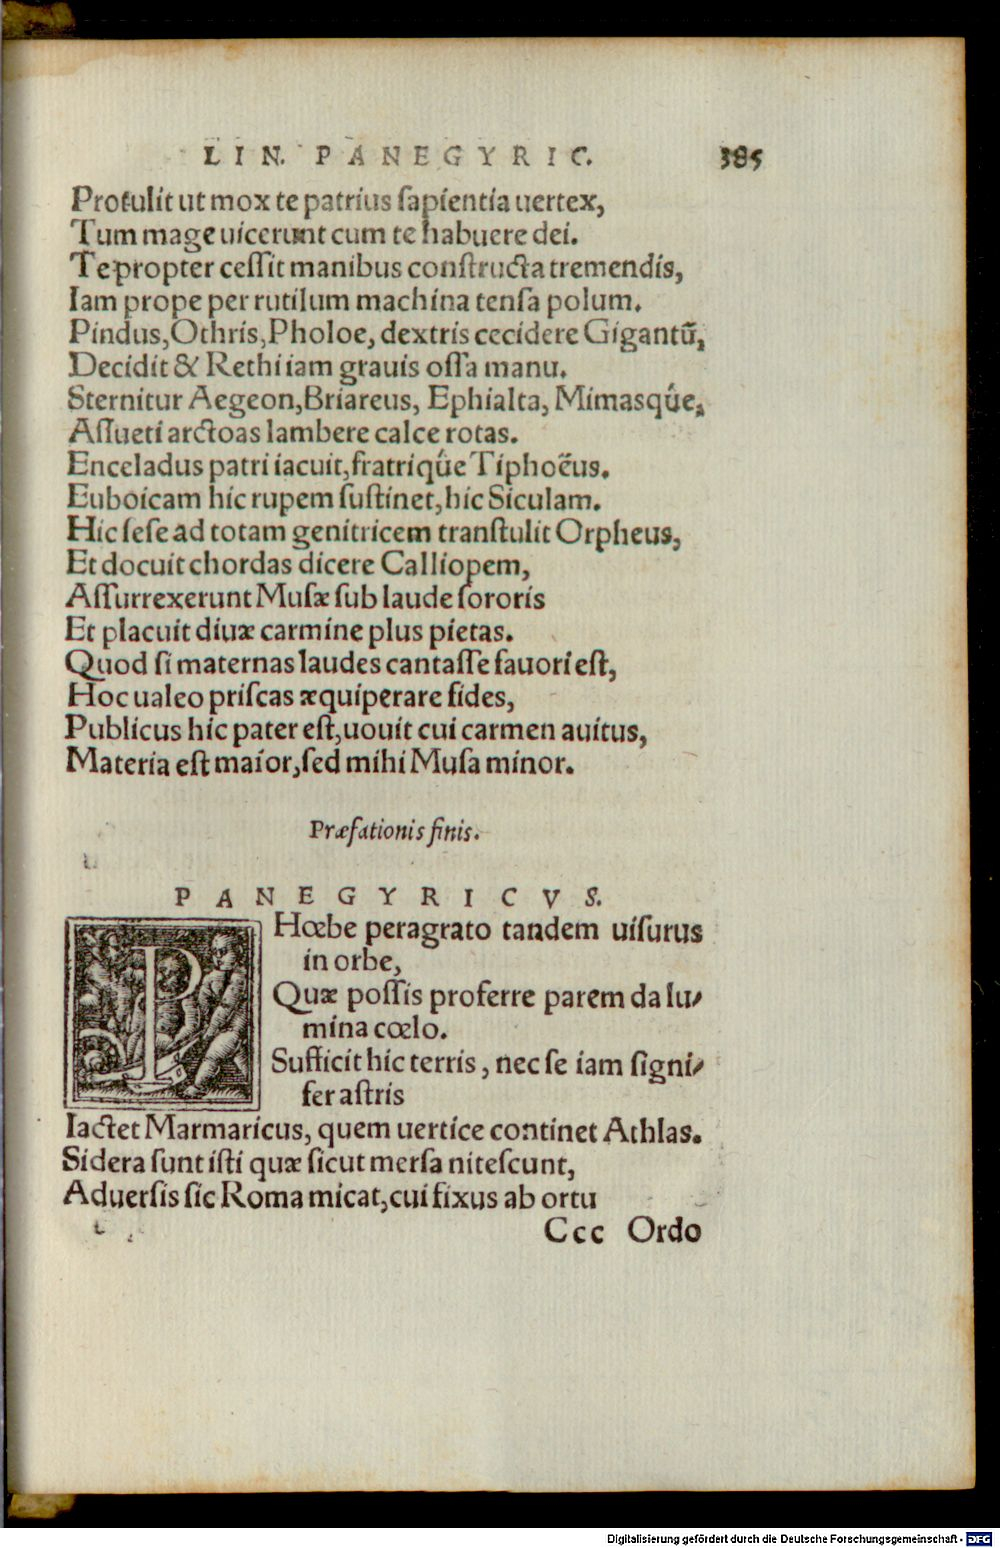 LIN. PANEGYRIC. 385
Protulit ut mox te patrius ſapientia uertex,
Tum mage uicerunt cum te habuere dei.
Te propter ceſſit manibus conſtructa tremendis,
Iam prope per rutilum machina tenſa polum.
Pindus, Othris, Pholoe, dextris cecidere Gigantũ,
Decidit & Rethi iam grauis oſſa manu.
Sternitur Aegeon, Briareus, Ephialta, Mimasq́ue,
Aſſueti arctoas lambere calce rotas.
Enceladus patri iacuit, fratriq́ue Tiphoẽus.
Euboicam hic rupem ſuſtinet, hic Siculam.
Hic ſeſe ad totam genitricem tranſtulit Orpheus,
Et docuit chordas dicere Calliopem,
Aſſurrexerunt Muſæ ſub laude ſororis
Et placuit diuæ carmine plus pietas.
Quod ſi maternas laudes cantaſſe fauori eſt,
Hoc ualeo priſcas æquiperare fides,
Publicus hic pater eſt, uouit cui carmen auitus,
Materia eſt maior, ſed mihi Muſa minor.
Præfationis finis.
PANEGYRICVS.
PHœbe peragrato tandem uiſurus
in orbe,
Quæ poſſis proferre parem da lu⸗
mina cœlo.
Sufficit hic terris, nec ſe iam ſigni⸗
fer aſtris
Iactet Marmaricus, quem uertice continet Athlas.
Sidera ſunt iſti quæ ſicut merſa niteſcunt,
Aduerſis ſic Roma micat, cui fixus ab ortu
Ccc Ordo
Digitalisierung gefördert durch die Deutsche Forschungsgemeinschaft - DFG